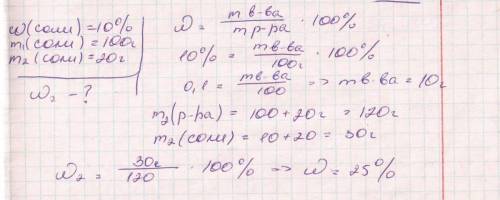 ω(соли) = 10%
m₁(соли) = 100г
m₂(соли) = 20г
ω₂ - ?
ω = m в-ва / m р-ра · 100%
10% = m в-ва / 100г · 100%
0,1 = m в-ва / 100 => m в-ва = 10г
m₂(р-ра) = 100 + 20г = 120г
m₂(соли) = 10 + 20 = 30г
ω₂ = 30г / 120 · 100% => ω = 25%